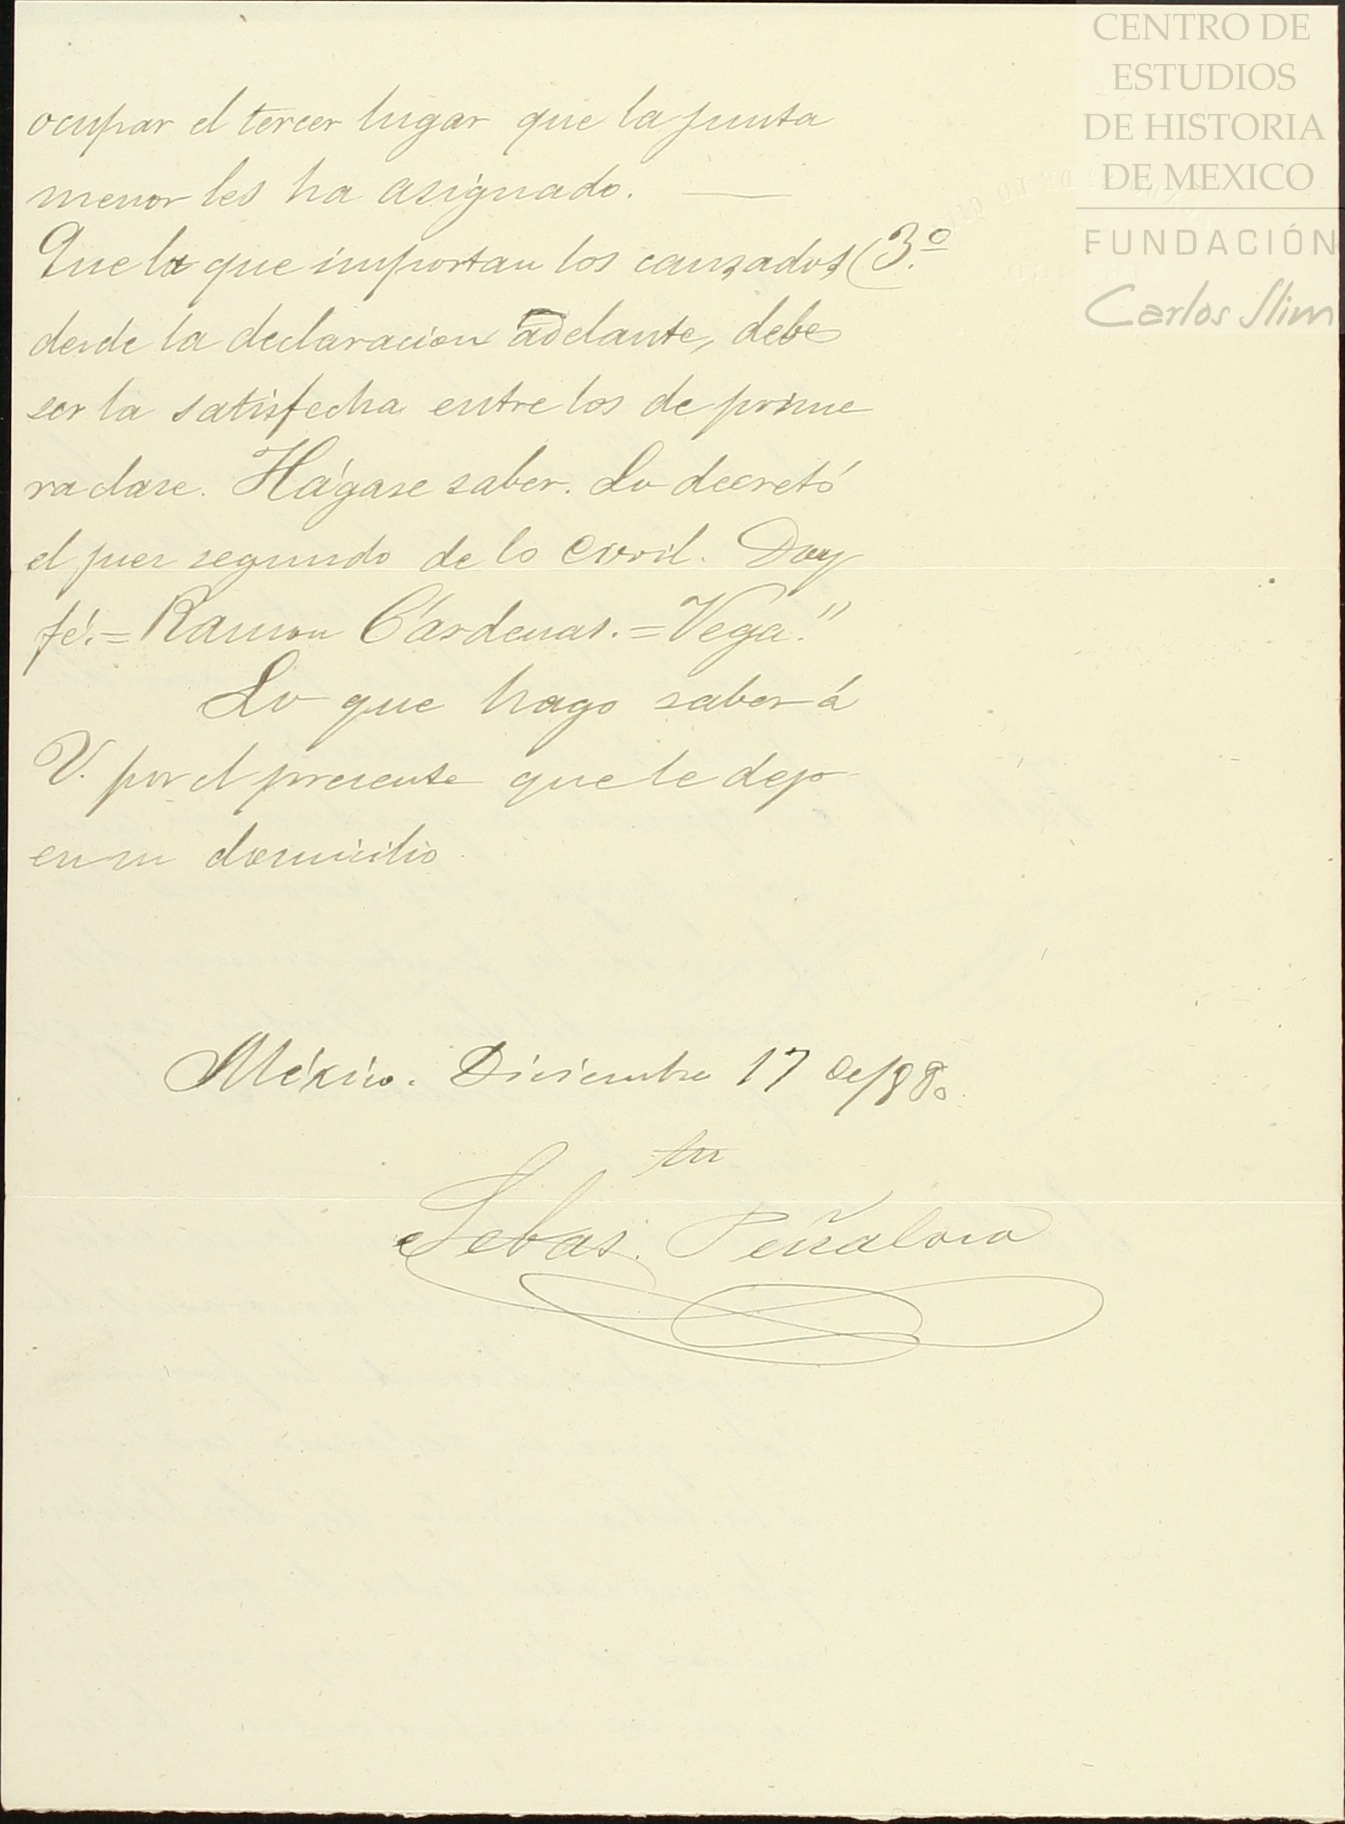 CENTRO DE
ESTUDIOS
DE HISTORIA
DE MEXICO
FUNDACIÓN
Carlos Slim
ocupar el tercer lugar que la junta
menor les ha asignado. —
Que la que importan los causados (3.º
desde la declaracion adelante, debe
ser la satisfecha entre los de prime
ra clase. Hágase saber. Lo decretó
el juez segundo de lo Civil. Doy
fé. = Ramon Cárdenas. = Vega."
Lo que hago saber á
V. por el presente que le dejo
en su domicilio.
México. Diciembre 17 de
Sebas. Peñalosa